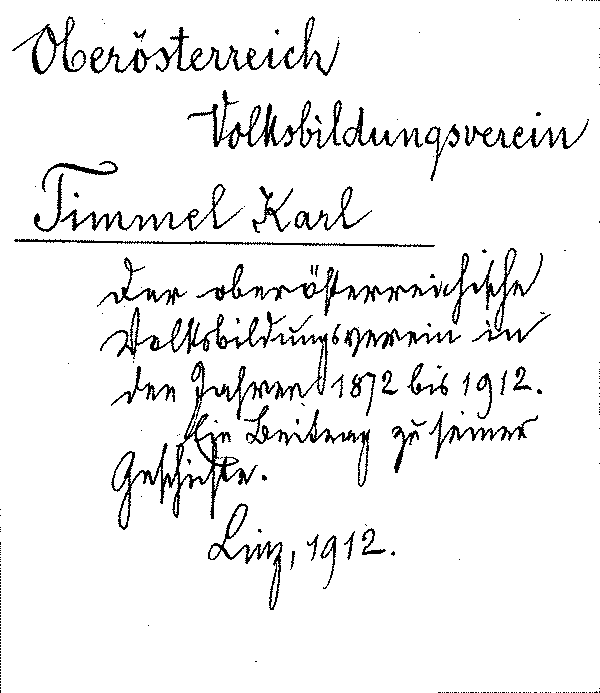 Oberösterreich
Volksbildungsverein
Timmel Karl
Der oberösterreichische
Volksbildungsverein in
den Jahren 1872 bis 1912.
Ein Beitrag zu seiner
Geschichte.
Linz, 1912.